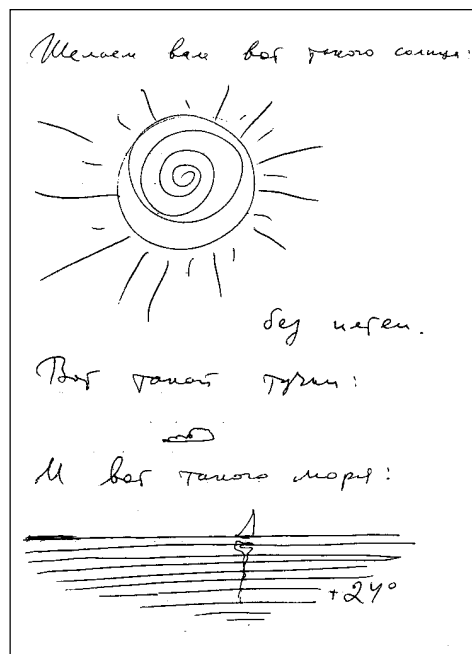 Желаем вам вот такого солнца:
без пятен.
Вот такой тучки:
И вот такого моря:
+24°